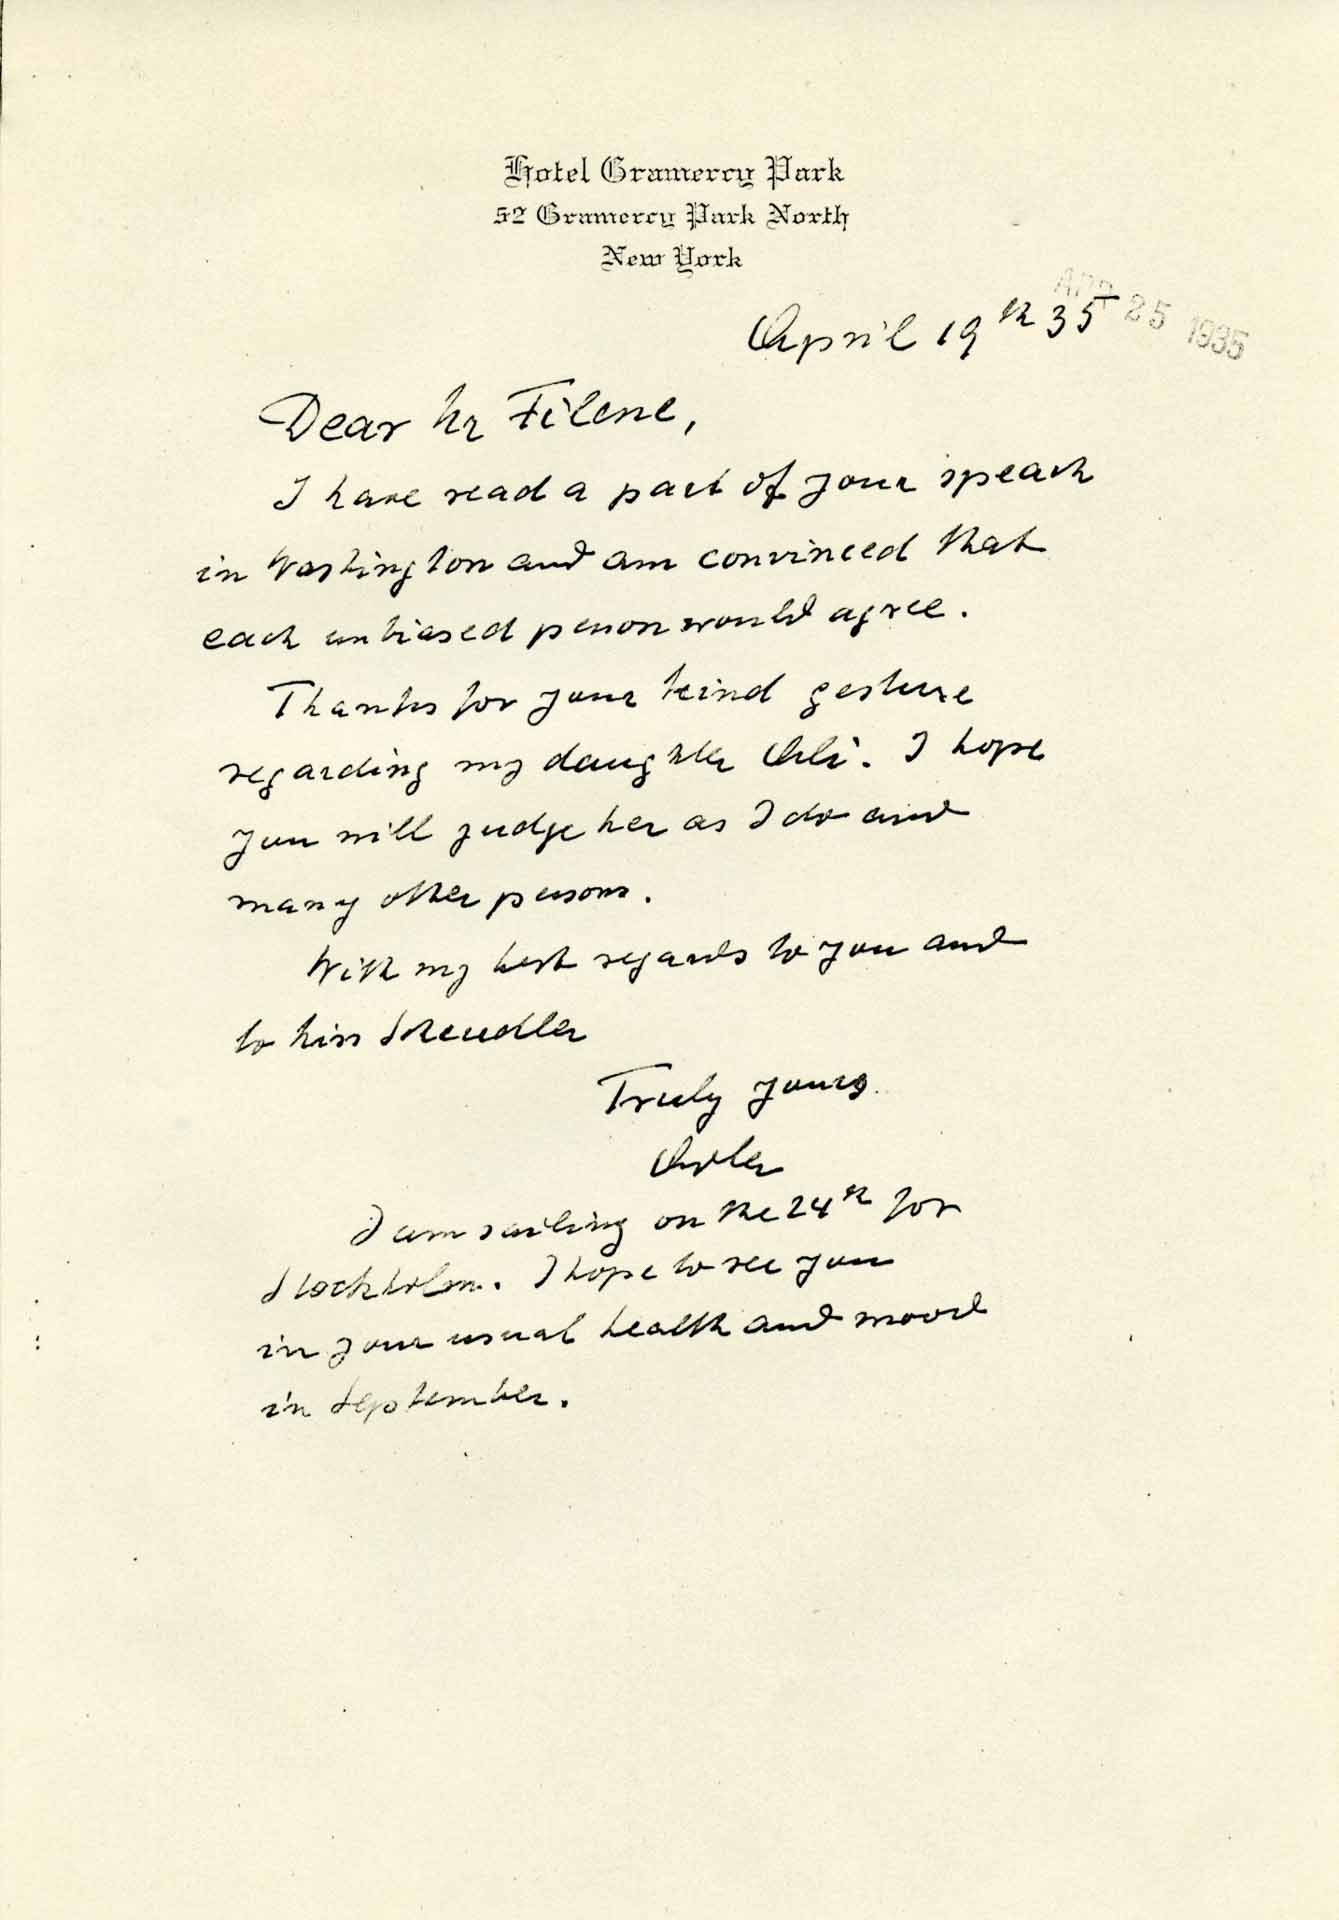 Hotel Gramercy Park
52 Gramercy Park North
New York
APR 25 1935
April 19th 35
Dear Mr Filene,
I have read a part of your speach
in Washington and am convinced that
each unbiased person would agree.
Thanks for your kind gesture
regarding my daughter Ali. I hope
you will judge her as I do and
many other persons.
With my best regards to you and
to Miss
Truly yours
Adler
I am sailing on the 24th for
Stockholm. I hope to see you
in your usual health and mood
in September.